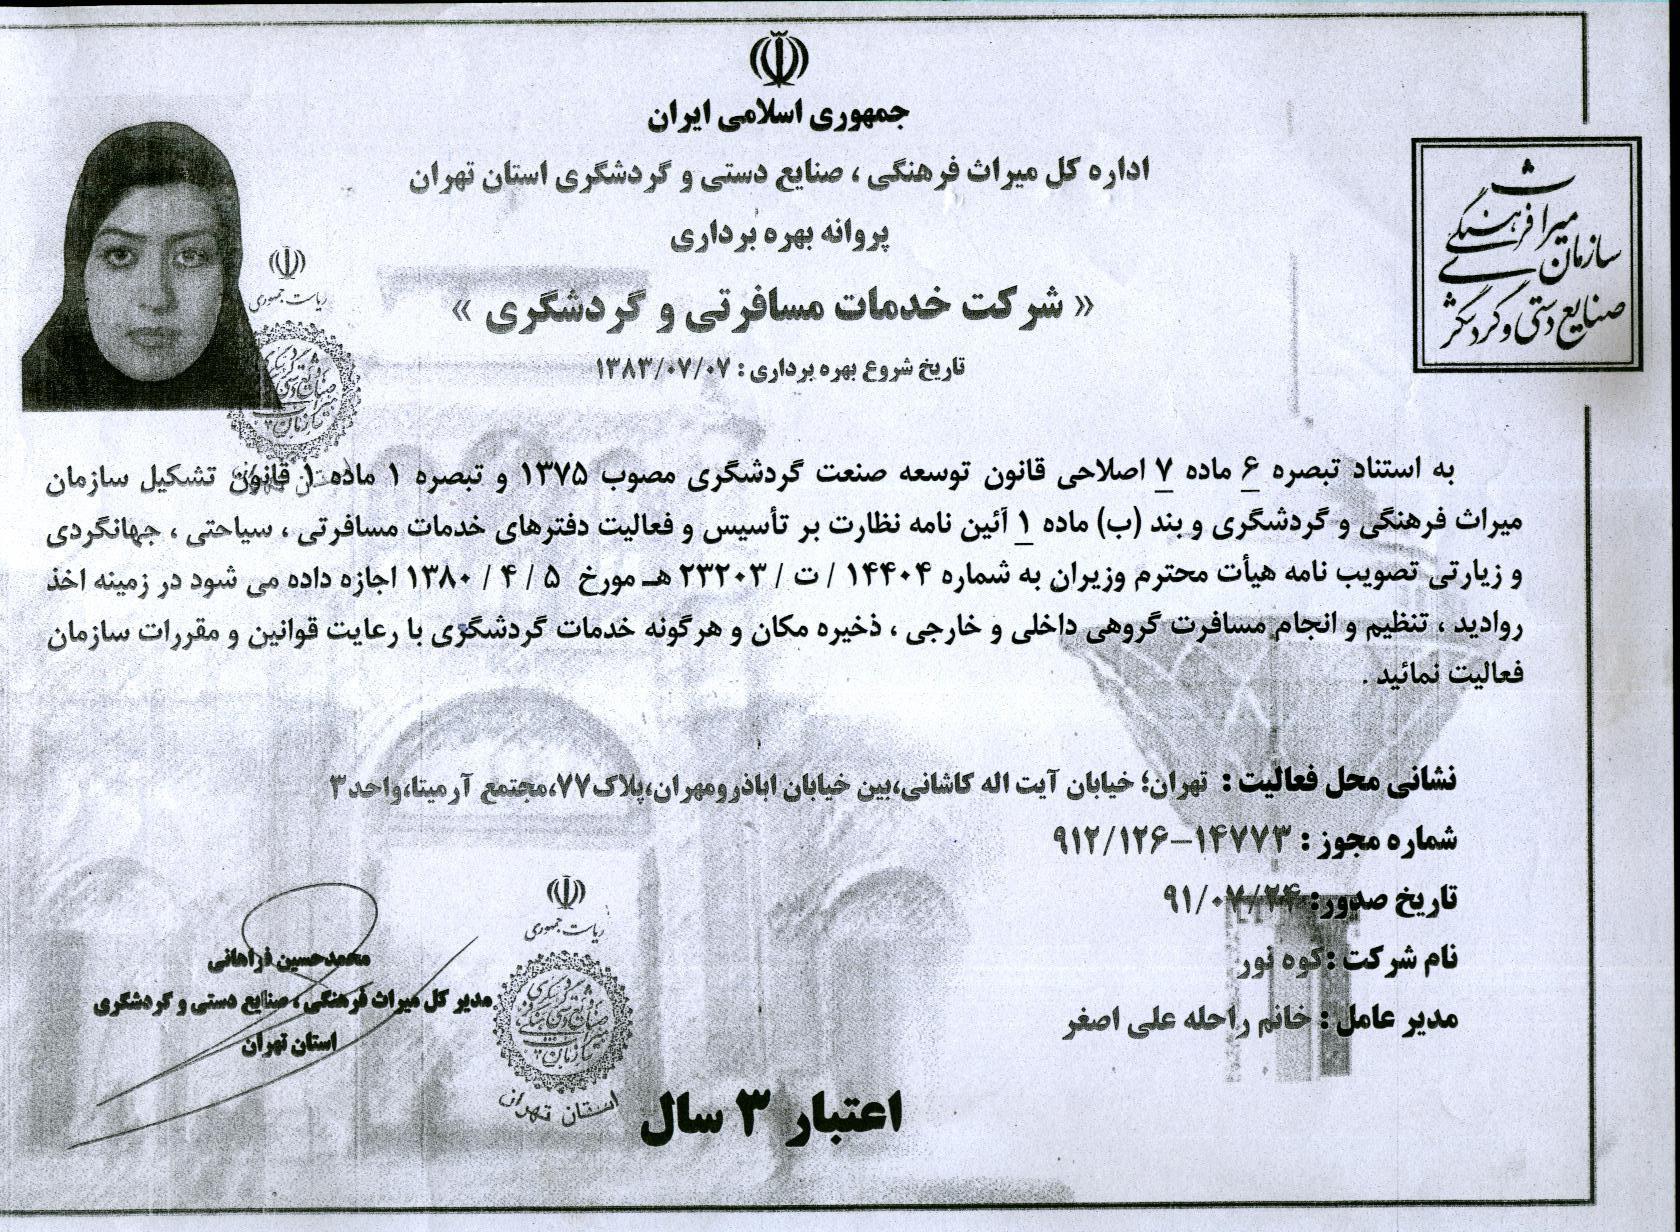 جمهوری اسلامی ایران
اداره کل میراث فرهنگی ، صنایع دستی و گردشگری استان تهران
پروانه بهره برداری
« شرکت خدمات مسافرتی و گردشگری »
تاریخ شروع بهره برداری : ۱۳۸۳/۰۷/۰۷
سازمان میراث فرهنگی
صنایع دستی و گردشگری
ریاست جمهوری
به استناد تبصره ۶ ماده ۷ اصلاحی قانون توسعه صنعت گردشگری مصوب ۱۳۷۵ و تبصره ۱ ماده ۱ قانون تشکیل سازمان
میراث فرهنگی و گردشگری و بند (ب) ماده ۱ آئین نامه نظارت بر تأسیس و فعالیت دفترهای خدمات مسافرتی ، سیاحتی ، جهانگردی
و زیارتی تصویب نامه هیأت محترم وزیران به شماره ۱۴۴۰۴ / ت / ۲۳۲۰۳ هـ مورخ ۵ / ۴ / ۱۳۸۰ اجازه داده می شود در زمینه اخذ
روادید ، تنظیم و انجام مسافرت گروهی داخلی و خارجی ، ذخیره مکان و هرگونه خدمات گردشگری با رعایت قوانین و مقررات سازمان
فعالیت نمائید .
نشانی محل فعالیت : تهران؛ خیابان آیت اله کاشانی،بین خیابان اباذرومهران،پلاک۷۷،مجتمع آرمیتا،واحد۳
شماره مجوز : ۹۱۲/۱۲۶–۱۴۷۷۳
تاریخ صدور: ۹۱/۰۷/۲۴
نام شرکت :کوه نور
مدیر عامل : خانم راحله علی اصغر
محمدحسین فراهانی
مدیر کل میراث فرهنگی ، صنایع دستی و گردشگری
استان تهران
ریاست جمهوری
استان تهران
اعتبار ۳ سال